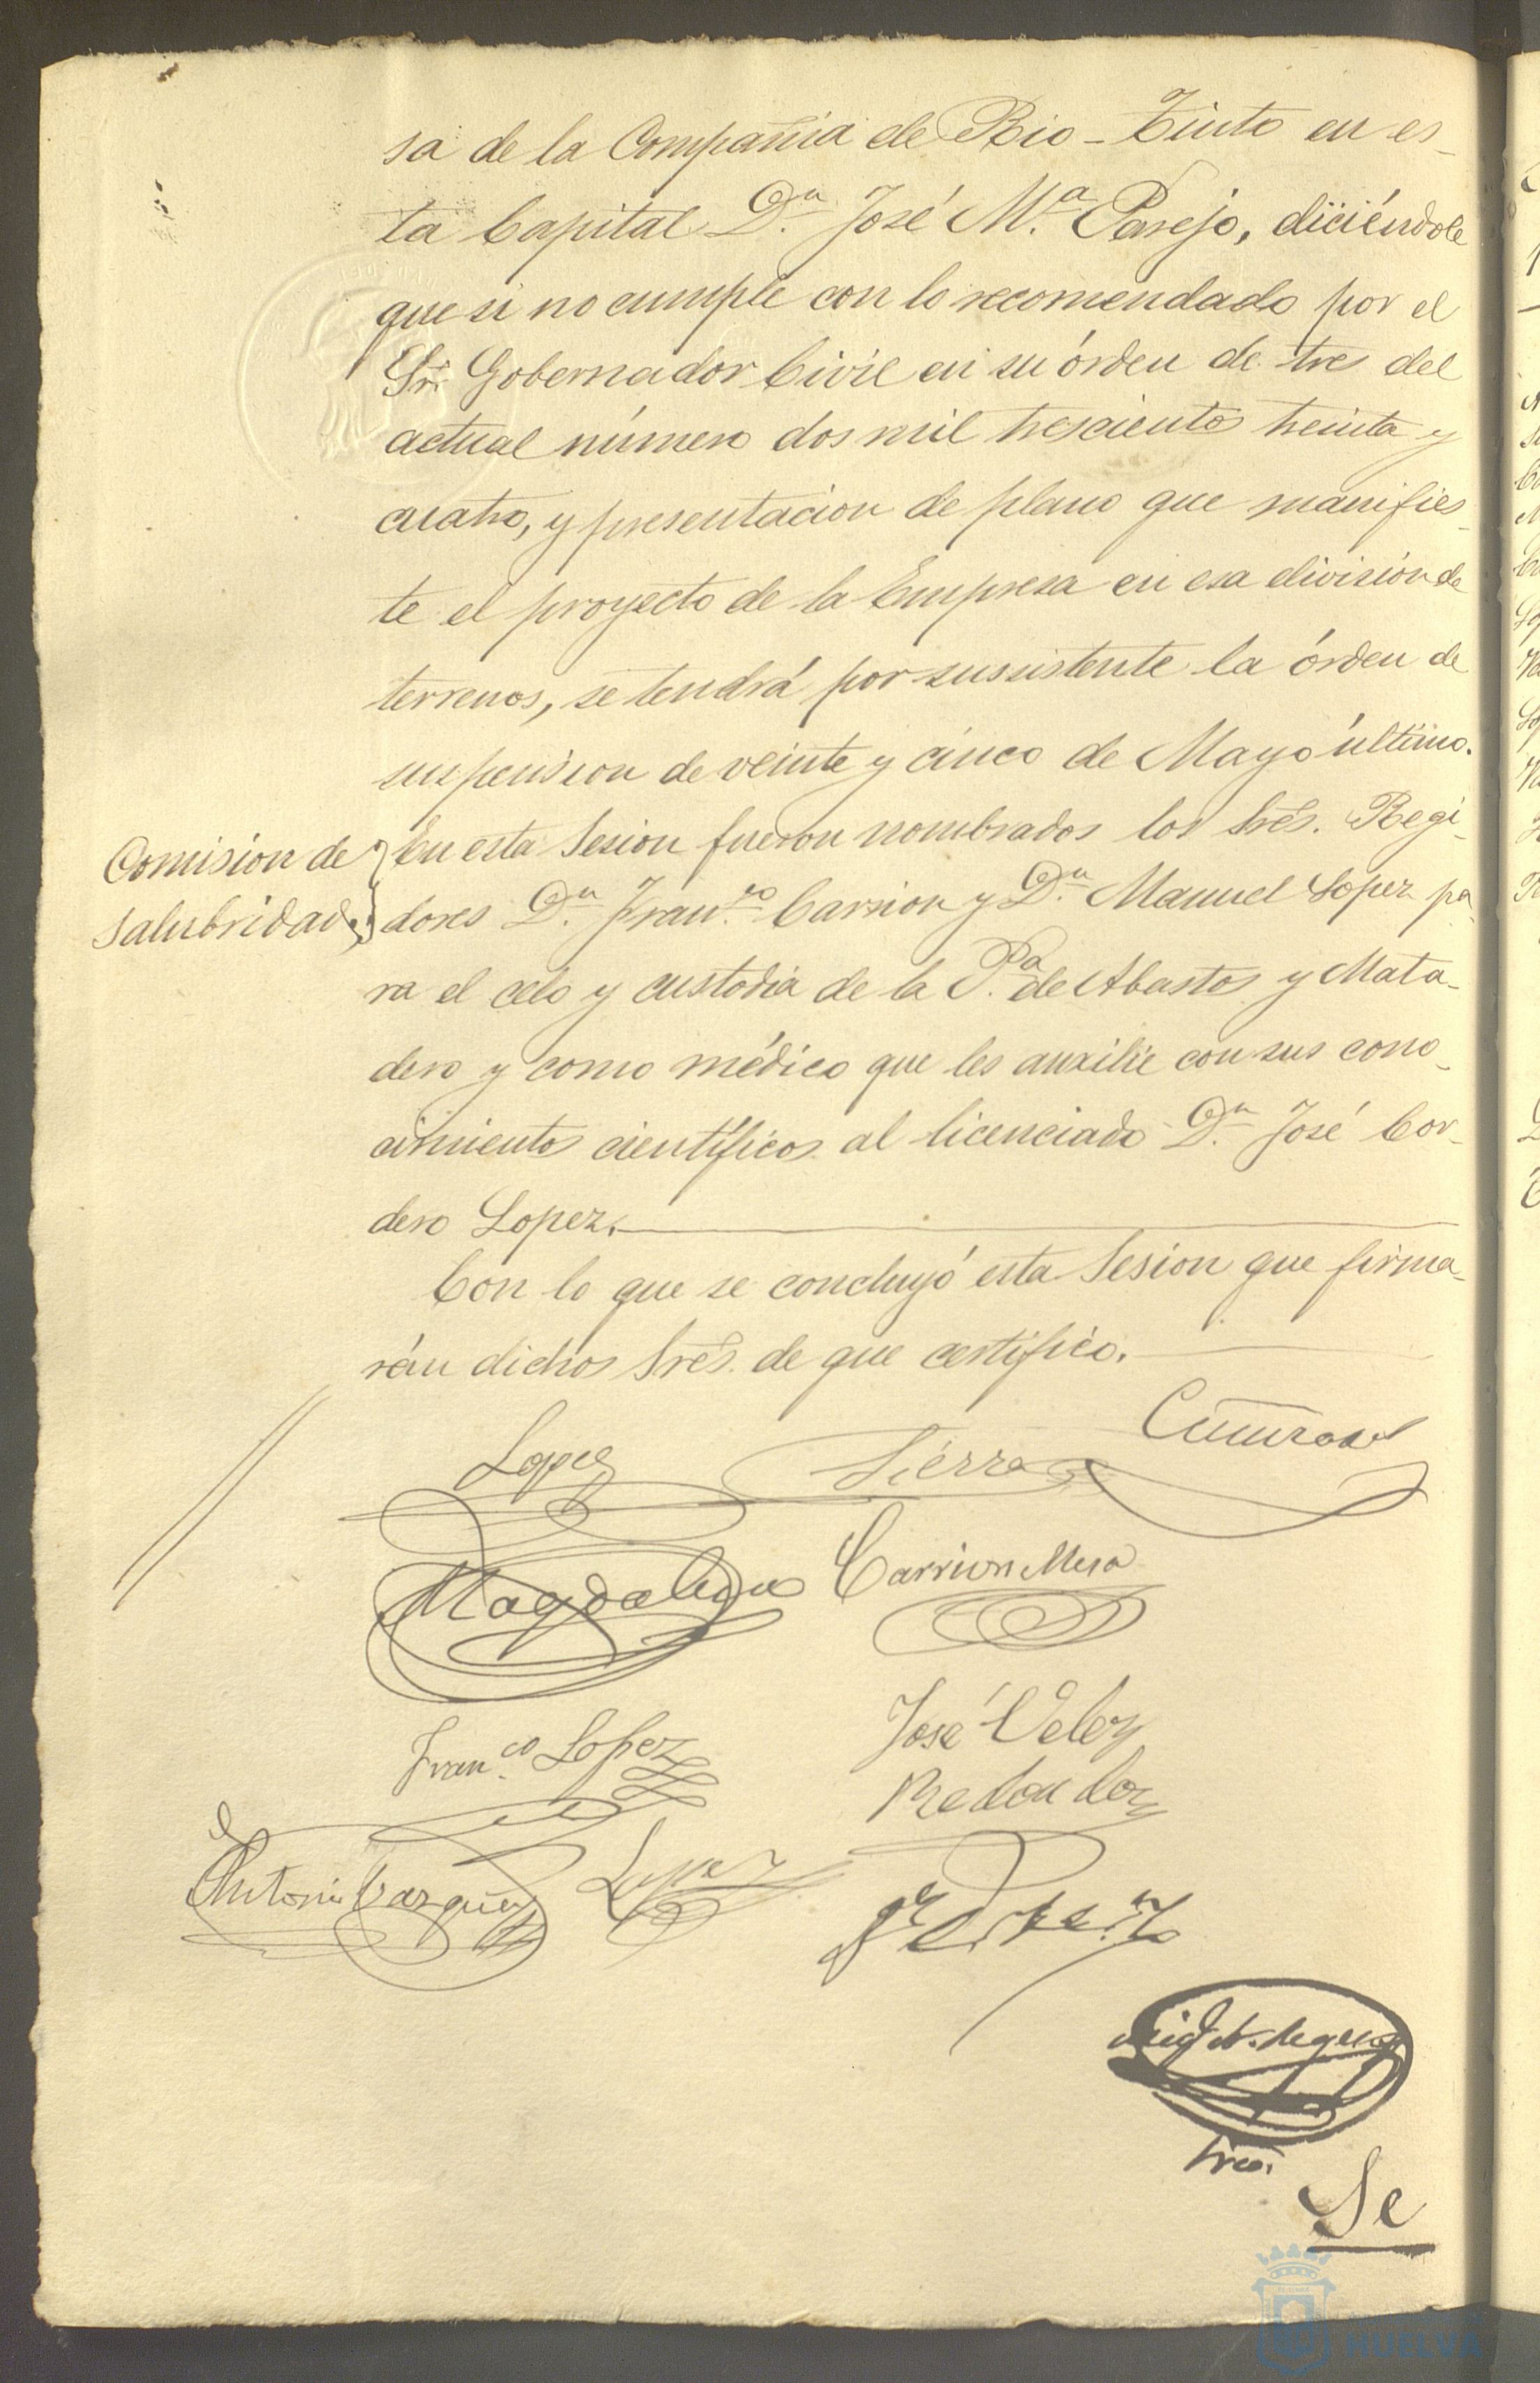 sa de la Compañia de Rio-Tinto en es-
ta Capital D.n José M.a Parejo, diciéndole
que si no cumple con lo recomendado por el
Sr. Gobernador Civil en su órden de tres del
actual número dos mil trescientos treinta y
cuatro, y presentacion de plano que manifies-
te el proyecto de la Empresa en esa division de
terrenos, se tendrá por sussistente la órden de
suspension de veinte y cinco de Mayo último.
Comision de
salubridad.
En esta Sesion fueron nombrados los Sres. Regi-
dores D.n Fran.co Carrion y D.n Manuel Lopez pa-
ra el celo y custodia de la P.a de Abastos y Mata-
dero y como médico que les auxilie con sus cono-
cimientos científicos al licenciado D.n José Cor-
dero Lopez.
Con lo que se concluyó esta Sesion que firma-
rán dichos Sres. de que certifico.
Lopez
Sierra
Magdaleno
Carrion Mesa
Fran.co Lopez
José Velez
Redondo
Antonio Vazquez
Lopez
Srio.
Se
HUELVA